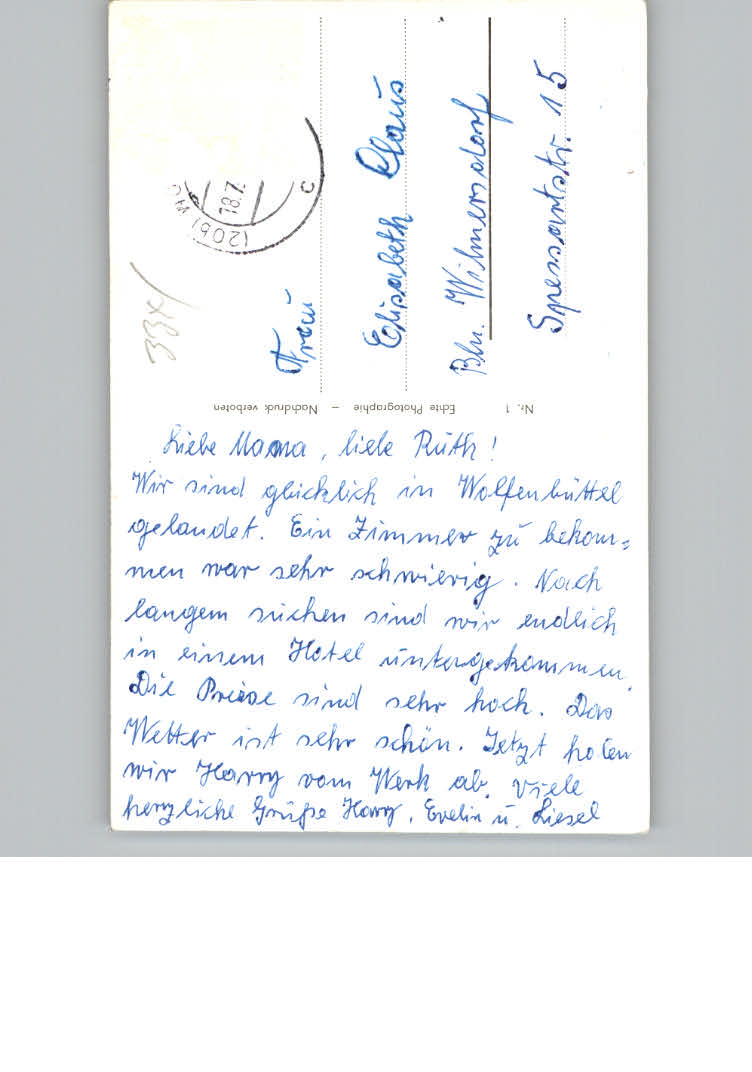 Liebe Mama, liebe Ruth!
Wir sind glücklich in Wolfenbüttel
gelandet. Ein Zimmer zu bekom=
men war sehr schwierig. Nach
langem suchen sind wir endlich
in einem Hotel untergekommen.
Die Preise sind sehr hoch. Das
Wetter ist sehr schön. Jetzt holen
wir Harry vom Werk ab. Viele
herzliche Grüße Harry, Evelin u. Liesel
Nr. 1 Echte Photographie – Nachdruck verboten
Frau
Elisabeth Claus
Bln. Wilmersdorf
Spessartstr. 15
(20b) WO
18.7.
c
334